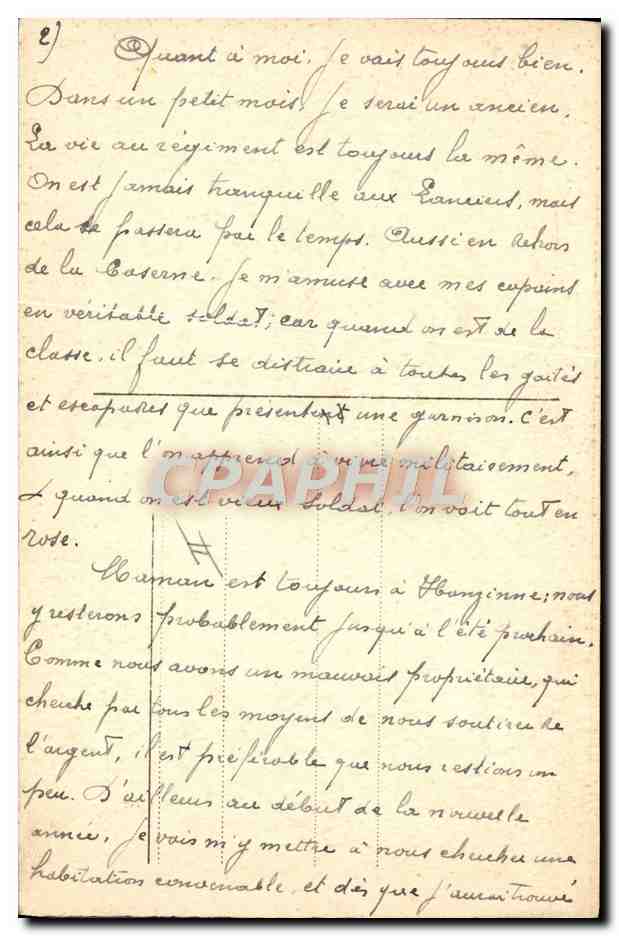 2)
Quant à moi, je vais toujours bien.
Dans un petit mois, je serai un ancien.
La vie au régiment est toujours la même.
On est jamais tranquille aux Lanciers, mais
cela se passera par le temps. Aussi en dehors
de la Caserne. Je m'amuse avec mes copains
en véritable soldat; car quand on est de la
classe, il faut se distraire à toutes les gaités
et escapades que présentent une garnison. C'est
ainsi que l'on apprend à vivre militairement,
& quand on est vieux soldat, l'on voit tout en
rose.
CPAPHIL
II
Maman est toujours à Hanzinne; nous
y resterons probablement jusqu'à l'été prochain.
Comme nous avons un mauvais propriétaire, qui
cherche par tous les moyens de nous soutirer de
l'argent, il est préférable que nous restions un
peu. D'ailleurs au début de la nouvelle
année, je vais m'y mettre à nous chercher une
habitation convenable, et dès que j'aurai trouvé